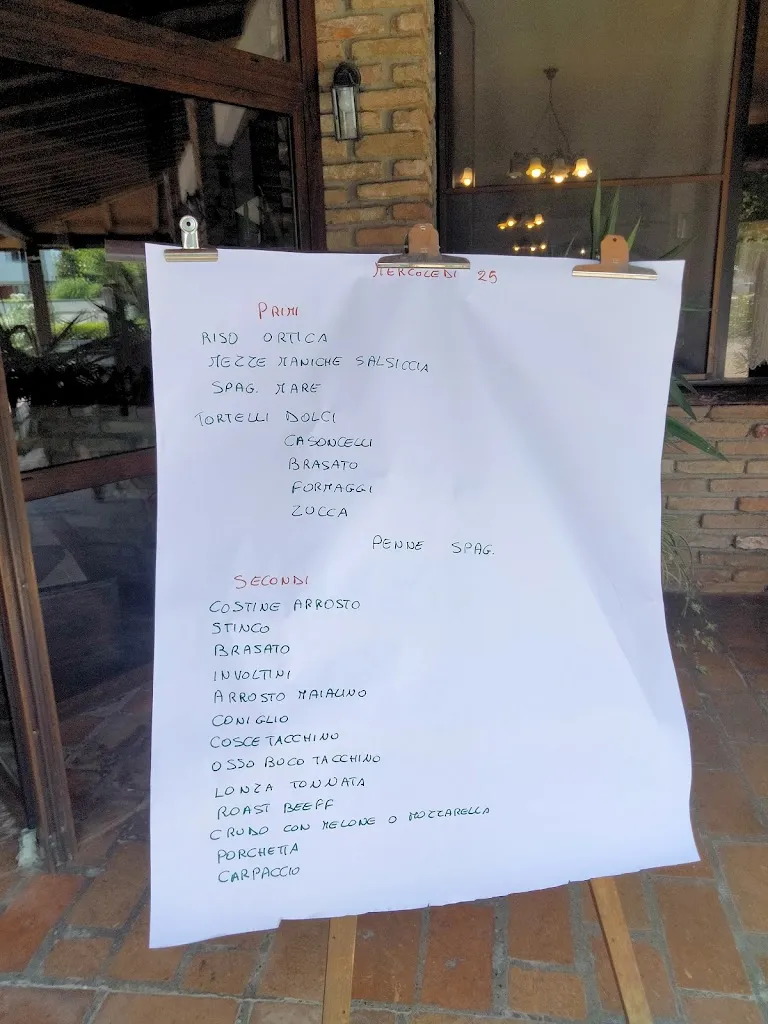 MERCOLEDI 25
PRIMI
RISO ORTICA
MEZZE MANICHE SALSICCIA
SPAG. MARE
TORTELLI DOLCI
CASONCELLI
BRASATO
FORMAGGI
ZUCCA
PENNE SPAG.
SECONDI
COSTINE ARROSTO
STINCO
BRASATO
INVOLTINI
ARROSTO MAIALINO
CONIGLIO
COSCE TACCHINO
OSSO BUCO TACCHINO
LONZA TONNATA
ROAST BEEFF
CRUDO CON MELONE O MOZZARELLA
PORCHETTA
CARPACCIO